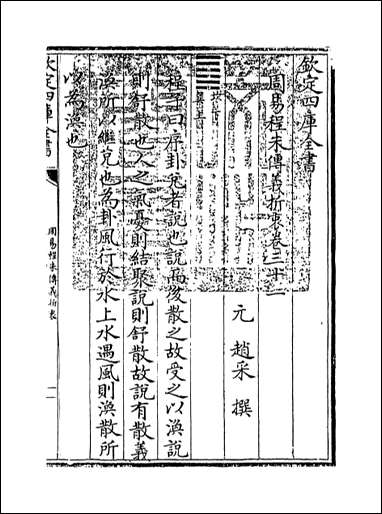 欽定四庫全書
周易程朱傳義折衷卷三十二
元 趙采 撰
程子曰序卦兌者說也說而後散之故受之以渙說
則舒散也人之氣憂則結聚說則舒散故說有散義
渙所以繼兌也為卦風行於水上水遇風則渙散所
以為渙也
欽定四庫全書
周易程朱傳義折衷